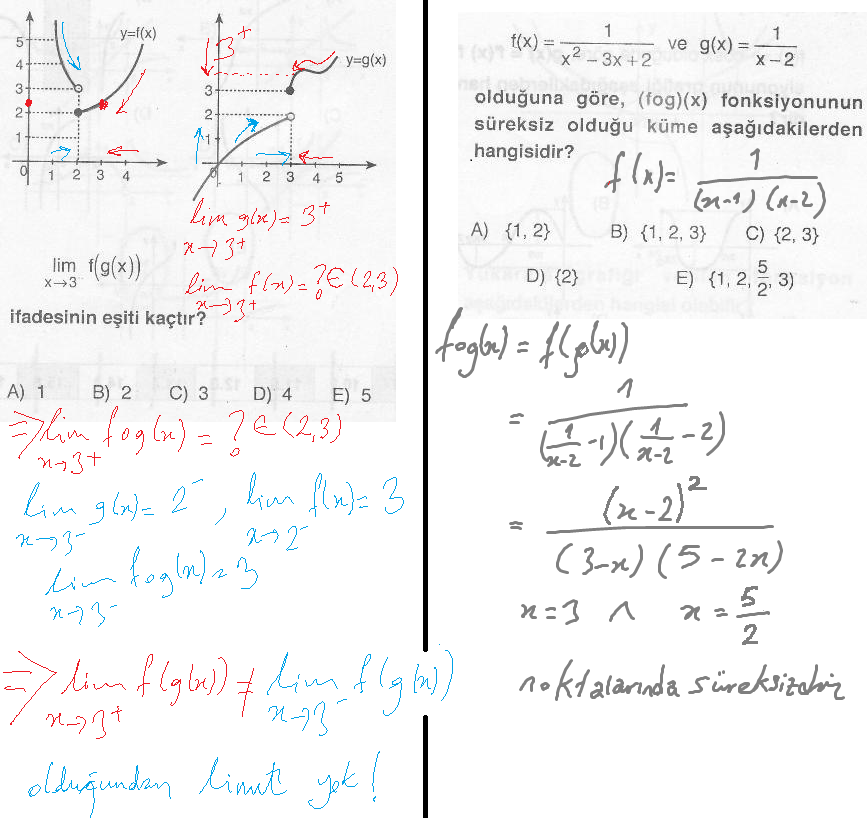 y=f(x)
5
4
3
2
1
0 1 2 3 4
3⁺
y=g(x)
3
2
1
0 1 2 3 4 5
lim g(x) = 3⁺
x→3⁺
lim f(g(x))
x→3⁻
lim f(x) = ? ∈ (2,3)
x→3⁺
ifadesinin eşiti kaçtır?
A) 1 B) 2 C) 3 D) 4 E) 5
⇒ lim fog(x) = ? ∈ (2,3)
x→3⁺
lim g(x) = 2⁻, lim f(x) = 3
x→3⁻ x→2⁻
lim fog(x) = 3
x→3⁻
⇒ lim f(g(x)) ≠ lim f(g(x))
x→3⁺ x→3⁻
olduğundan limit yok!
f(x) = 1/(x² − 3x + 2) ve g(x) = 1/(x − 2)
olduğuna göre, (fog)(x) fonksiyonunun
süreksiz olduğu küme aşağıdakilerden
hangisidir?
f(x) = 1/((x-1)(x-2))
A) {1, 2} B) {1, 2, 3} C) {2, 3}
D) {2} E) {1, 2, 5/2, 3)
fog(x) = f(g(x))
= 1/((1/(x-2) -1)(1/(x-2) -2))
= (x-2)²/((3-x)(5-2x))
x=3 ∧ x = 5/2
noktalarında süreksizdir